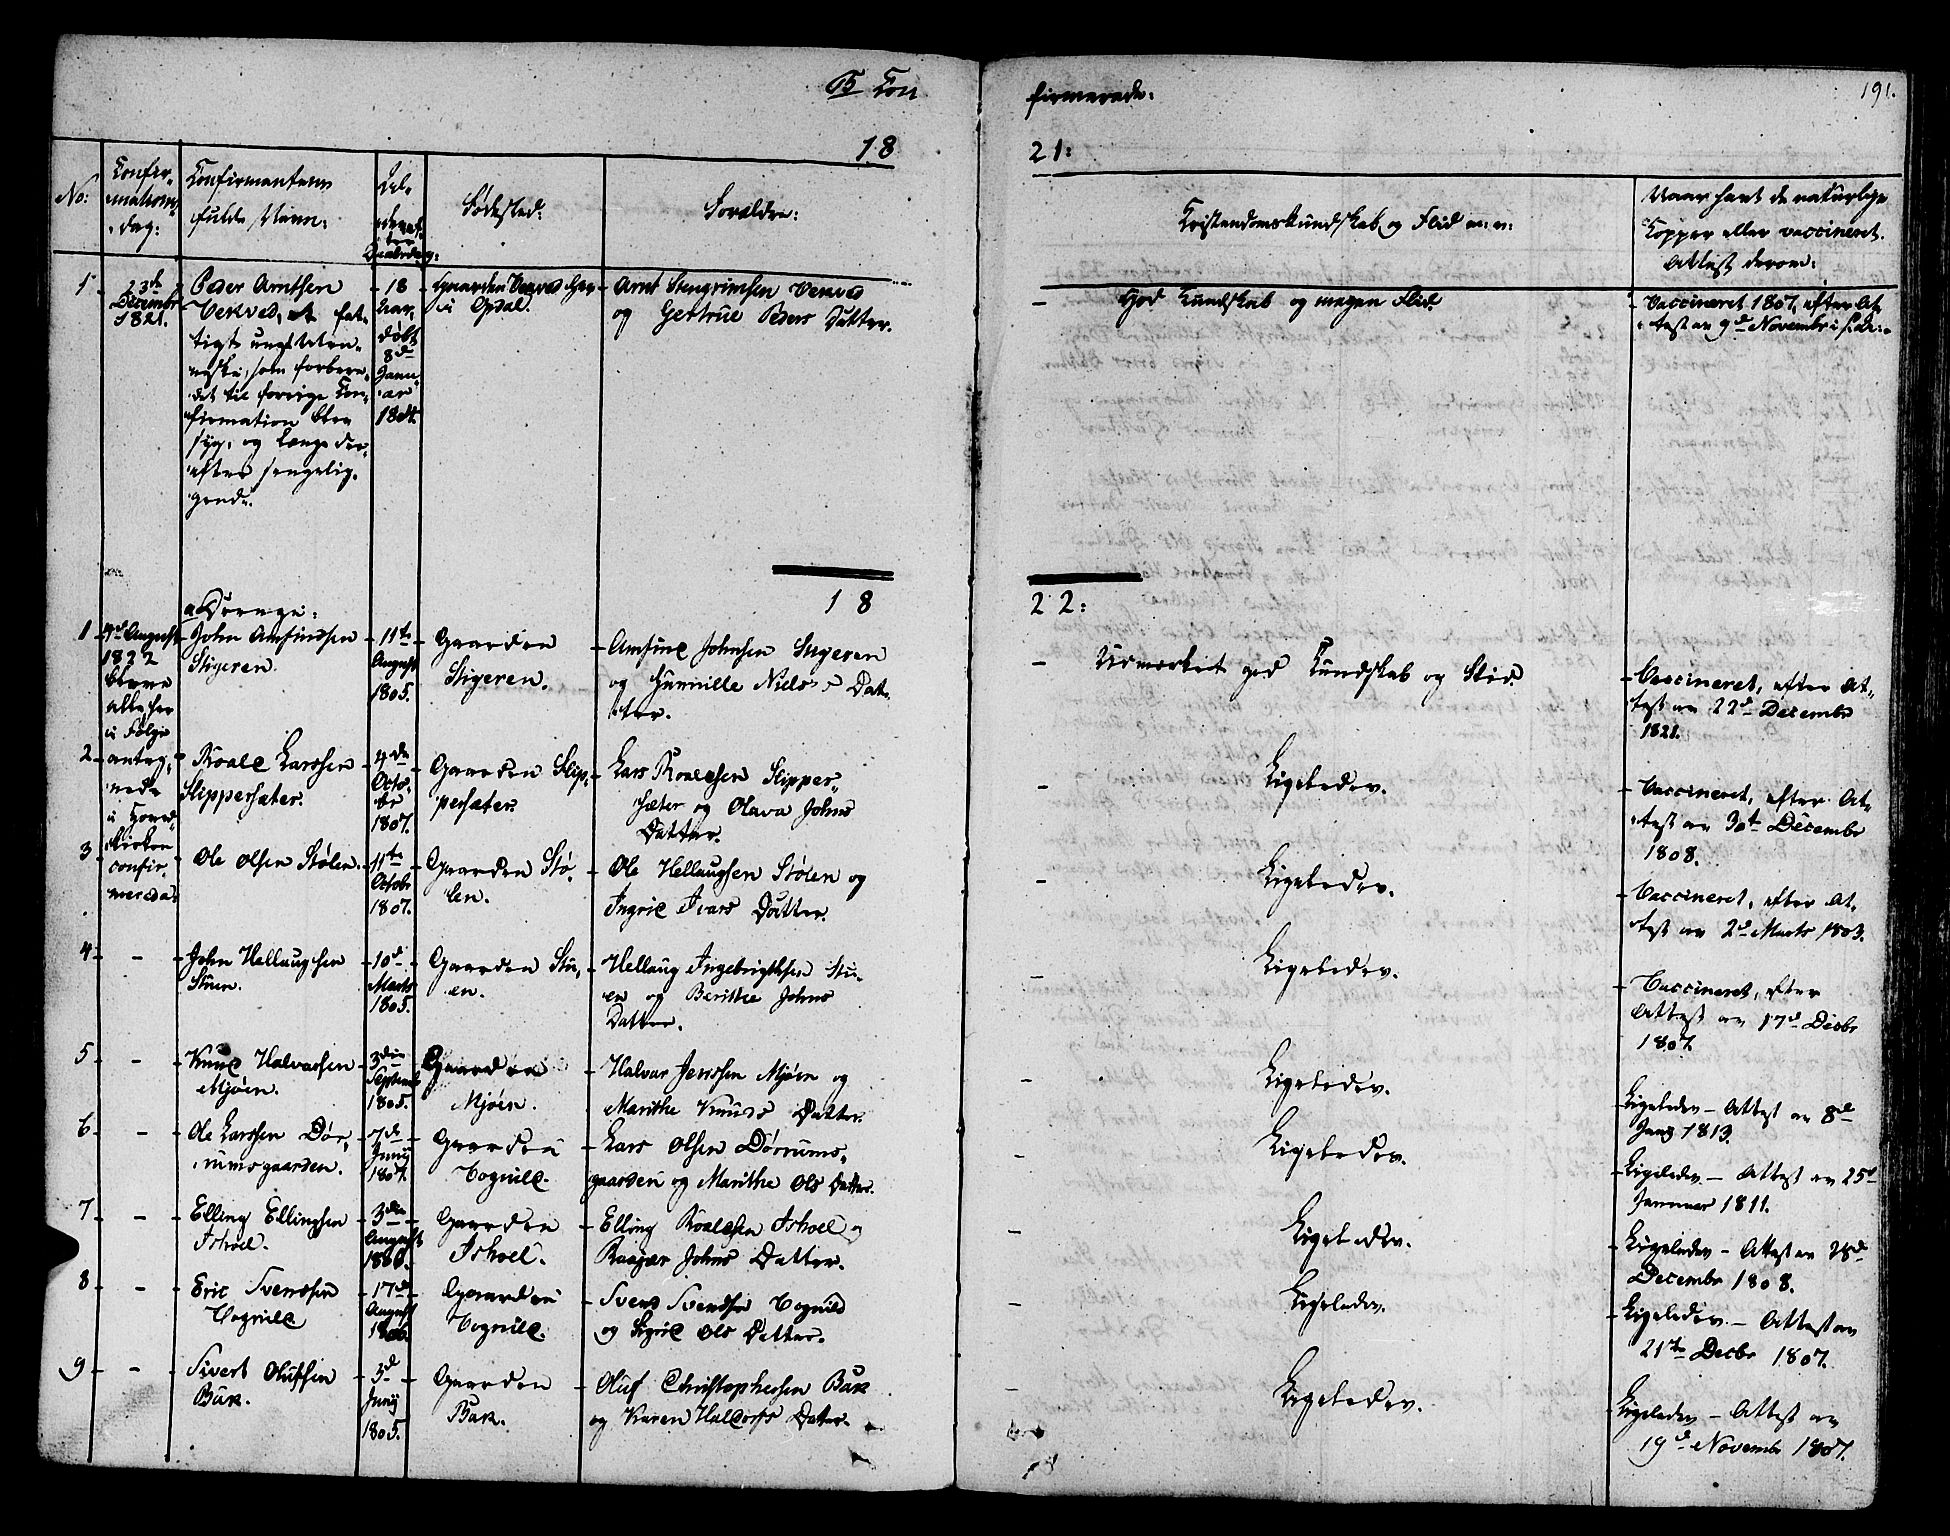 B Con
firmerede:
191.
18
21:
No:
Confir-
mations-
dag:
Confirmantens
fulde Navn:
Fødested:
Forældre:
Kristendomskundskab og Flid m: v:
Naar havt de naturlige
Kopper eller vaccineret.
Attest derom:
1
23de
Decembr
1821.
Peder Arntsen
Vekved, et fat-
tigt
som forbere-
det til forrige Con-
firmation blev
syg, og længe der-
efter sengelig-
gende.
18
Aar,
døbt
8de
Janu-
ar
1804.
Gaarden Vekved
i Opdal.
Arnt Stengrimsen Vekved
og Gertrue Peders Datter.
God Kundskab og megen Flid.
Vaccineret 1807, efter At-
test av 9de Novembr
18
22:
a Drenge:
1
4de August
1822
bleve
alle her
i Følge
anteg-
nede
i Hoved-
kirken
confir-
merede.
John Amfindsen
Stigeren.
11te
August
1805.
Gaarden
Stigeren.
Amfind Johnsen Stigeren
og Gunnille Niels Dat-
ter.
Udmærket god Kundskab og Flid.
Vaccineret, efter At-
test av 22de Decembr
1821.
2
Roald Larssen
Slippersæter.
4de
Octo-
br
1807.
Gaarden Slip-
persæter.
Lars Roaldsen Slipper-
sæter og Olava Johns
Datter.
Ligeledes.
Vaccineret, efter At-
test av 30te Decembr
1808.
3
Ole Olsen Stølen.
11te
Octobr
1807.
Gaarden Stø-
len.
Ole Hellaugsen Stølen og
Ingrid Ivars Datter.
Ligeledes.
Vaccineret, efter At-
test av 2de Marts 1803.
4
John Hellaugsen
Stuen.
10de
Marts
1805.
Gaarden Stu-
en.
Hellaug Ingebrigthsen Stu-
en og Berithe Johns
Datter.
Ligeledes.
Vaccineret, efter
Attest av 17de Decbr
1807.
5
Knud Halvorssen
Mjøen.
3die
Septembr
1805.
Gaarden
Mjøen.
Halvor Jenssen Mjøen og
Marithe Knuds Datter.
Ligeledes.
Ligeledes – Attest av 8de
Janr 1813.
6
Ole Larssen Dør-
rumsgaarden.
7de
Junij
1807.
Gaarden
Vognild.
Lars Olsen Dørrums-
gaarden og Marithe Ols Datter.
Ligeledes.
Ligeledes – Attest av 25de
Januar 1811.
7
Elling Ellingsen
Ishoel.
3die
August
1806.
Gaarden
Ishoel.
Elling Roaldsen Ishoel og
Raagær Johns Datter.
Ligeledes.
Ligeledes – Attest av 28de
Decembr 1808.
8
Eric Svendsen
Vognild
17de
August
1806.
Gaarden
Vognild.
Svend Svendsen Vognild
og Sigrid Ols Datter.
Ligeledes.
Ligeledes – Attest av
21te Decbr 1807.
9
Sivert Olufsen
Bak.
3de
Junij
1805.
Gaarden
Bak.
Oluf Christophersen Bak
og Karen Haldorss Datter.
Ligeledes.
Ligeledes – Attest av
19de Novembr 1807.